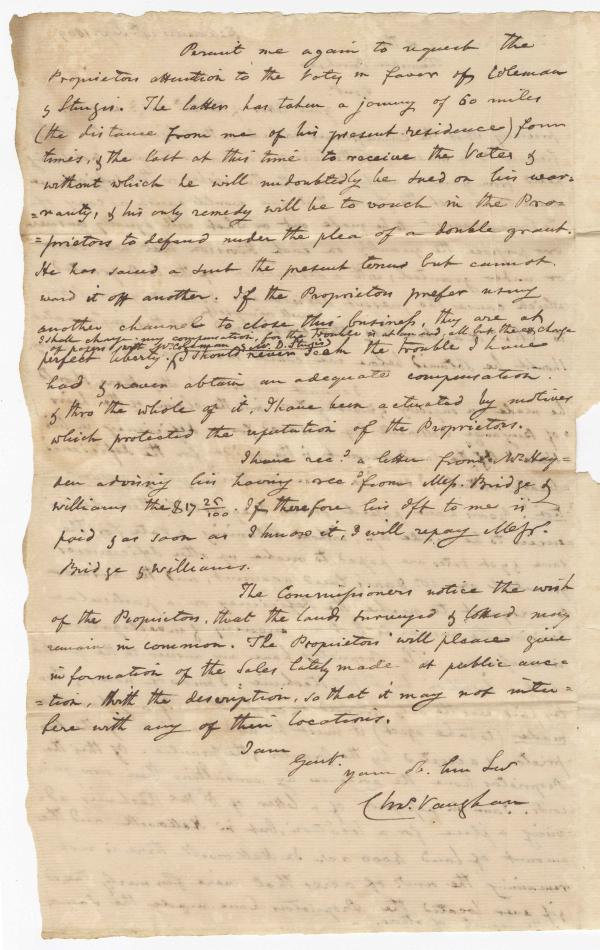 Permit me again to request the
Proprietors attention to the Votes in favor of Coleman
& Sturgis. The latter has taken a journey of 60 miles
(the distance from me of his present residence) four
times, & the last at this time to receive the Votes &
without which he will undoubtedly be sued on his war-
=ranty, & his only remedy will be to vouch in the Pro-
=prietors to defend under the plea of a double grant.
He has saved a suit the present term but cannot
ward it off another. If the Proprietors prefer using
another channel to close this business, they are at
I shall charge my compensation for the trouble
perfect liberty. I should never seek the trouble I have
had & never obtain an adequate compensation.
& thro' the whole of it, I have been actuated by motives
which protected the reputation of the Proprietors.
I have recd. a letter from Mr. Hay-
den advising his having recd. from Mess. Bridge &
Williams the $17 25/100. If therefore his dft to me is
paid & as soon as I know it, I will repay Messr.
Bridge & Williams.
The Commissioners notice the wish
of the Propietors, that the lands surveyed & lotted may
remain in common. The Proprietors will please give
information of the Sales lately made at public auc=
=tion, with the description, so that it may not inter=
fere with any of their locations.
I am
Gent.
your Ob. hm Sert
Chs. Vaughan